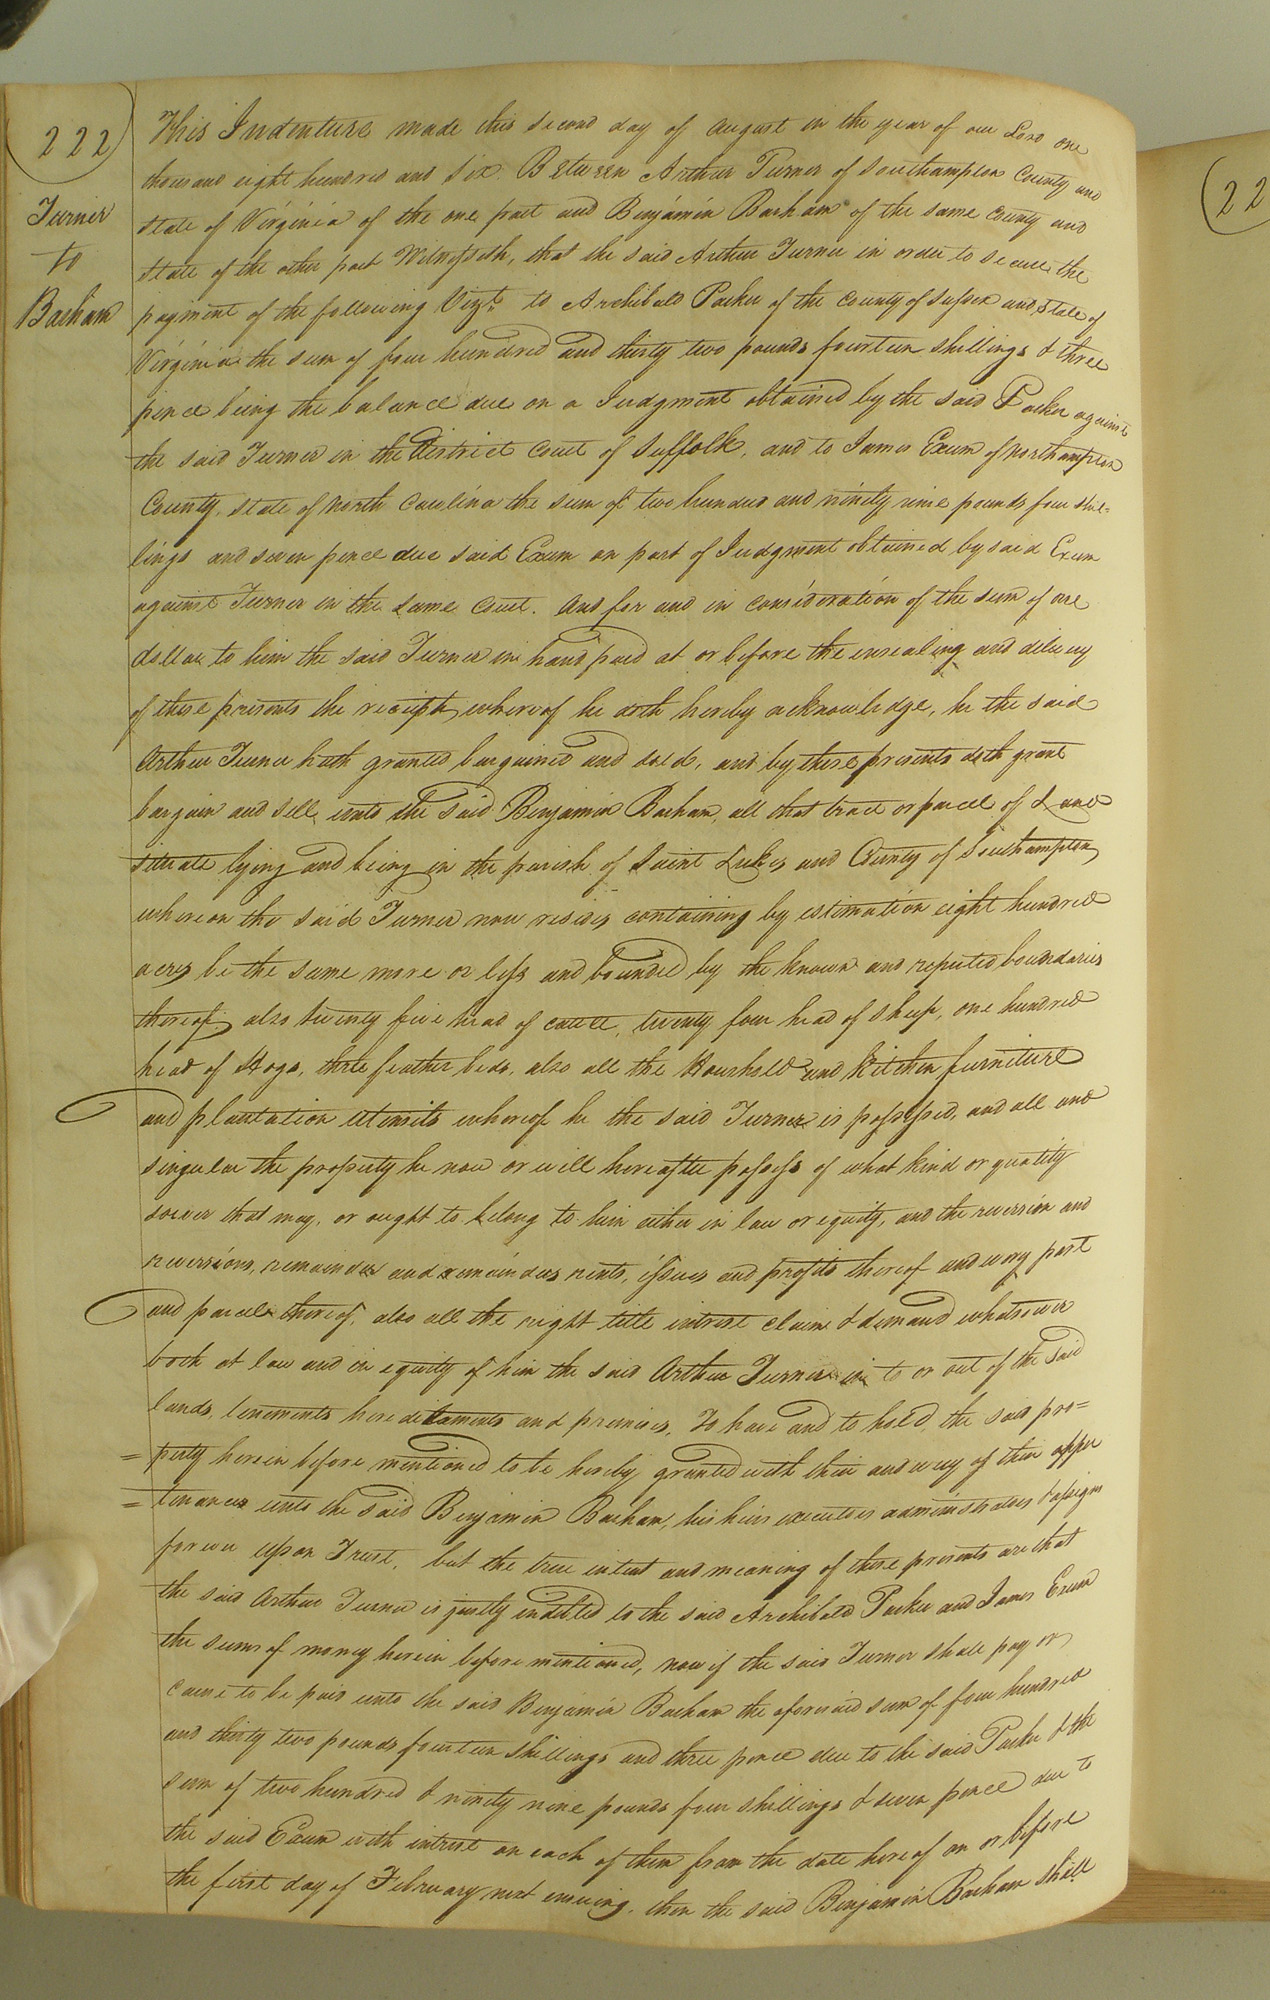 222
Turner
to
Barham
This Indenture made this second day of August in the year of our Lord one
thousand eight hundred and six Between Arthur Turner of Southampton County and
State of Virginia of the one part and Benjamin Barham of the same County and
State of the other part Witnesseth, that the said Arthur Turner in order to secure the
payment of the following Vizt. to Archibald Parker of the County of Sussex and State of
Virginia the sum of four hundred and thirty two pounds fourteen shillings & three
pence being the balance due on a Judgment obtained by the said Parker against
the said Turner in the District Court of Suffolk, and to James Exum of Northampton
County, State of North Carolina the sum of two hundred and ninety nine pounds four shil-
lings and seven pence due said Exum on part of Judgment obtained by said Exum
against Turner in the same Court. And for and in consideration of the sum of one
dollar to him the said Turner in hand paid at or before the ensealing and delivery
of these presents the receipt whereof he doth hereby acknowledge, he the said
Arthur Turner hath granted bargained and sold, and by these presents doth grant
bargain and sell unto the said Benjamin Barham, all that tract or parcel of Land
situate lying and being in the parish of Saint Lukes and County of Southampton
whereon the said Turner now resides containing by estimation eight hundred
acres be the same more or less and bounded by the known and reputed boundaries
thereof, also twenty five head of cattle, twenty four head of sheep, one hundred
head of Hogs, three feather beds, also all the Household and kitchen furniture
and plantation utensils whereof he the said Turner is possessed, and all and
singular the property he now or will hereafter possess of what kind or quality
soever that may, or ought to belong to him either in law or equity, and the reversion and
reversions, remainder and remainders rents, issues and profits thereof and every part
and parcel thereof, also all the right title interest claim & demand whatsoever
both at law and in equity of him the said Arthur Turner in to or out of the said
lands, tenements heredetaments and premises, To have and to hold the said pro=
=perty herein before mentioned to be hereby granted with their and every of their appur
=tenances unto the said Benjamin Barham, his heirs executors administrators & assigns
forever upon Trust, but the true intent and meaning of these presents are that
the said Arthur Turner is justly indebted to the said Archibald Parker and James Exum
the sums of money herein before mentioned, now if the said Turner shall pay or
cause to be paid unto the said Benjamin Barham the aforesaid sum of four hundred
and thirty two pounds fourteen shillings and three pence due to the said Parker & the
sum of two hundred & ninety nine pounds four shillings & seven pence due to
the said Exum with interest on each of them from the date hereof on or before
the first day of February next ensuing, then the said Benjamin Barham shall
22